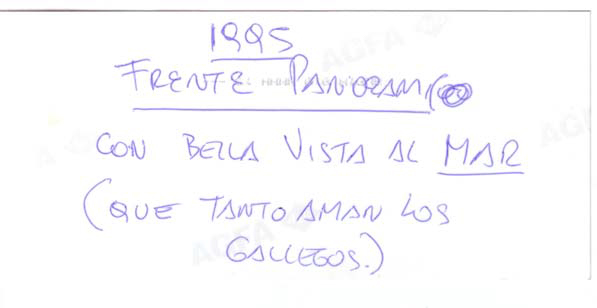 1995
FRENTE PANORAMICO
CON BELLA VISTA AL MAR
(QUE TANTO AMAN LOS
GALLEGOS.)
AGFA
AGFA
AGFA